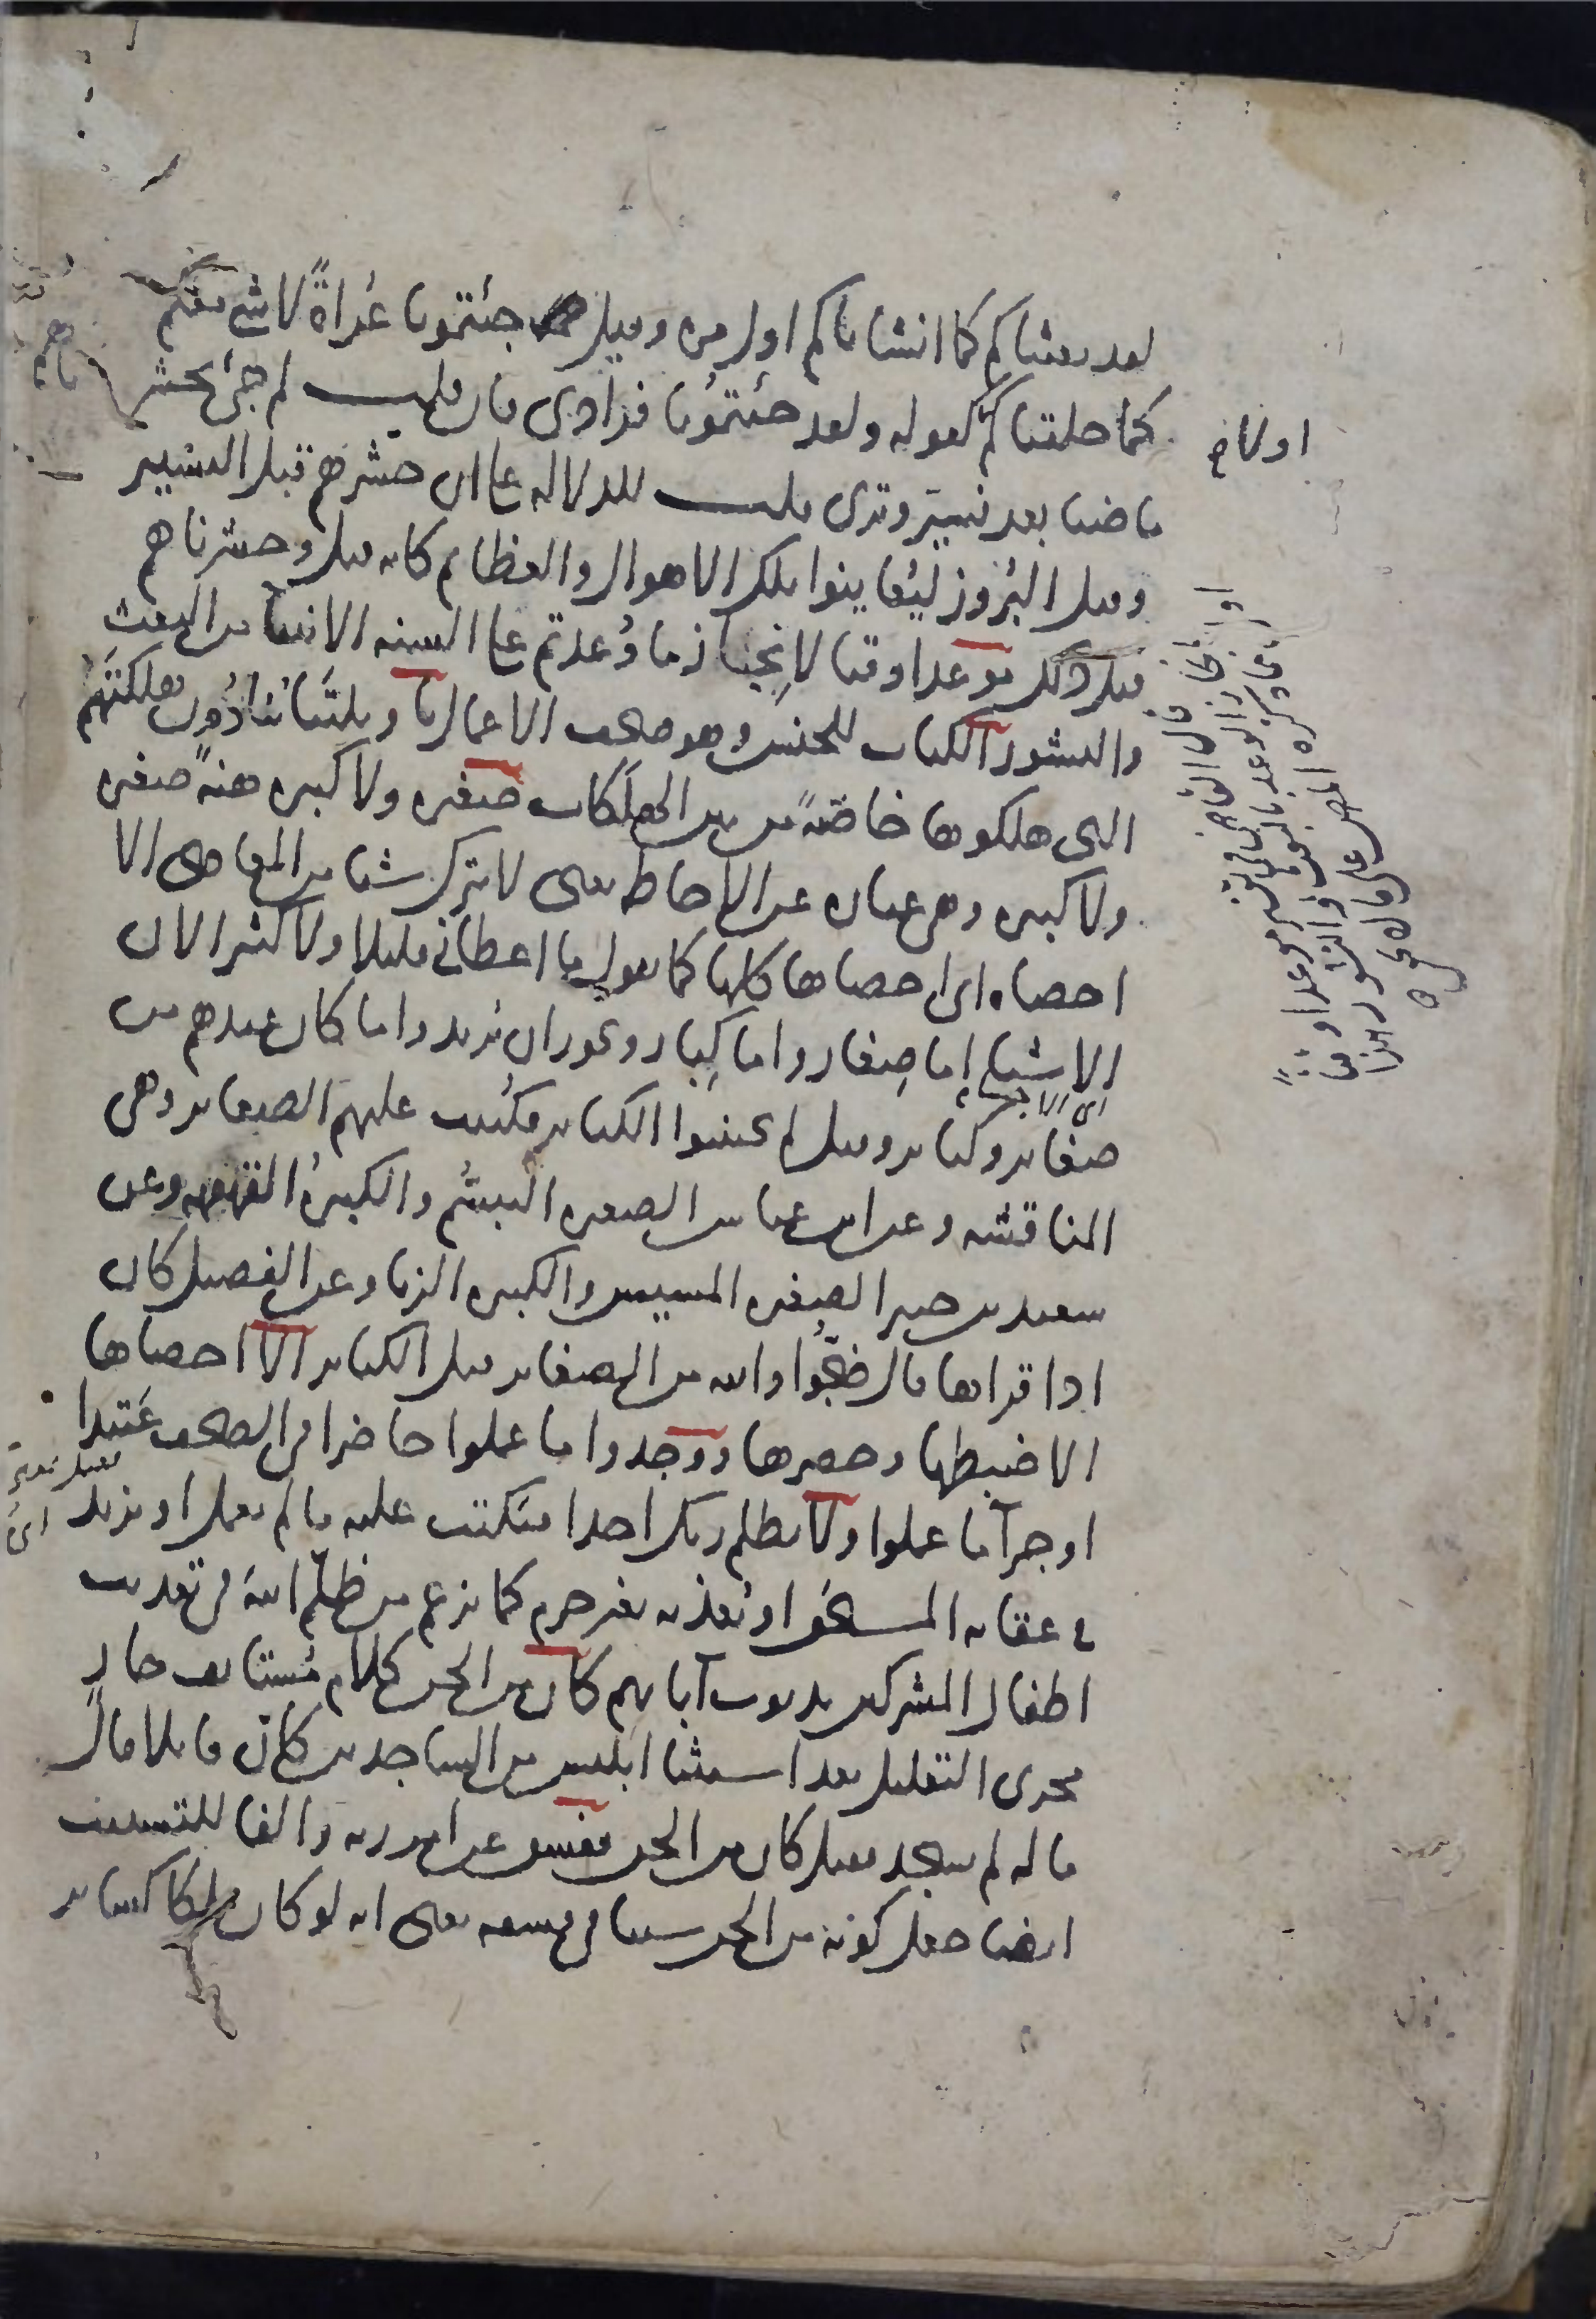 لقد بعثناكم كما انشاناكم اول مرة وقيل جئتمونا عُراةً لا شي معكم
كما خلقناكم كقوله ولقد جئتمونا فرادى فان قلت لم جئ بحشرناهم
ماضيا بعد نسير وترى قلت للدلالة على ان حشرهم قبل التسيير
وقبل البُروز ليُعاينوا تلك الاهوال والعظايم كانه قيل وحشرناهم
قبل ذلك موعدا وقتا لانجاز ما وُعدتم على السنة الانبيا من البعث
والنشور الكتاب للجنس وهو صحف الاعمال يا ويلتنا ينادون هلكتهم
التي هلكوها خاصّةً من بين الهلكات صغيرة ولا كبيرة هنةً صغيرة
ولا كبيرة وهي عبارة عن الاحاطة يعنى لا يترك شيا من المعاصى الا
احصاه اى احصاها كلها كما تقول ما اعطاني قليلا ولا كثيرا لان
الاشياء إما صِغار واما كِبار ويجوز ان يُريد واما كان عندهم من
صغاير وكباير وقيل لم يجتنبوا الكباير فكُتبت عليهم الصغاير وهى
المناقشة وعن ابن عباس الصغيرة التبسُّم والكبيرةُ القهقهة وعن
سعيد بن جبير الصغيرة المسيس والكبيرة الزنا وعن الفضيل كان
اذا قراها قال ضجُّوا والله من الصغاير قبل الكباير الا احصاها
الا ضبطها وحصرها ووجدوا ما عملوا حاضرا في الصحف عَتيدا
او جزآ ما عملوا ولا يظلم ربك احدا فيكتب عليه ما لم يعمل او يزيد
في عقابه المستحق او يُعذبه بغير جرم كما يزعم من ظلّم اللهَ فى تعذيب
اطفال المشركين بذنوب آبايهم كان من الجن كلام مُستانف جارٍ
مجرى التعليل بعد استثنا ابليس من الساجدين كانّ قايلا قال
ما له لم يسجد فقيل كان من الجن ففسق عن امر ربه والفا للتسبيب
ايضا جعل كونه من الجن سببا فى فسقه يعنى انه لو كان ملكا كساير